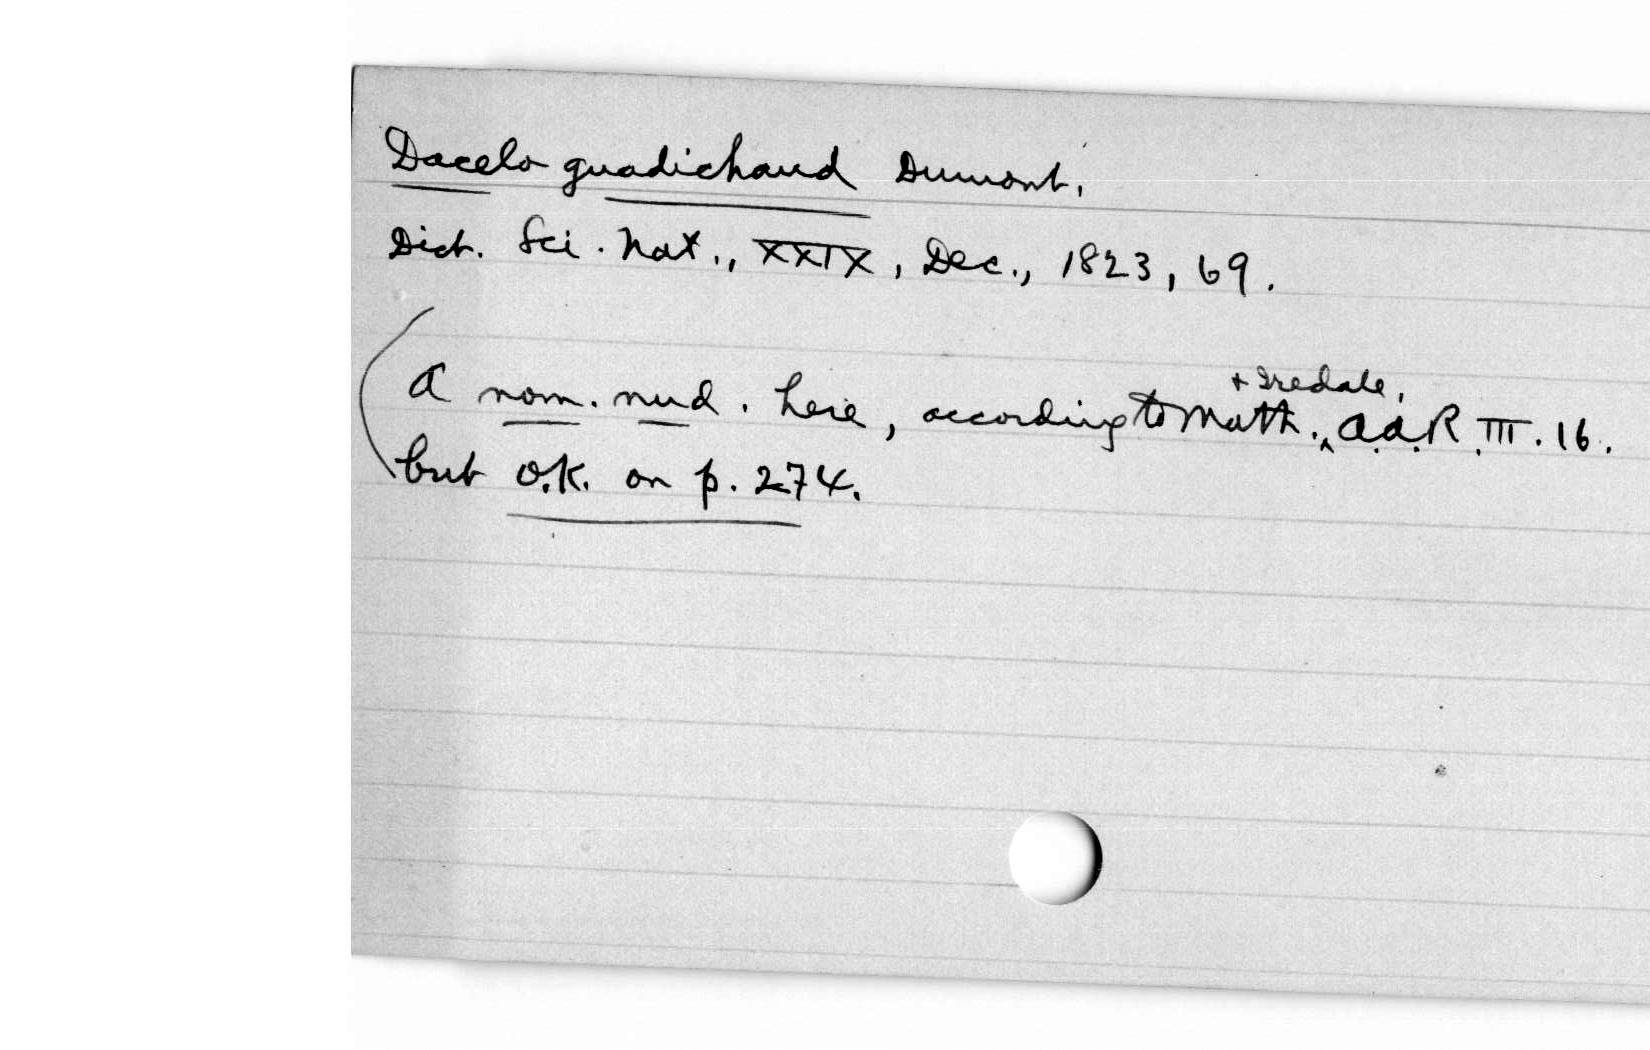 Dacelo guadichaud Dumont,
Dict. Sci. Nat., XXIX, Dec., 1823, 69.
(A nom. nud. here, according to Math. + Iredale, A.A.R. III. 16.
but O.K. on p. 274.